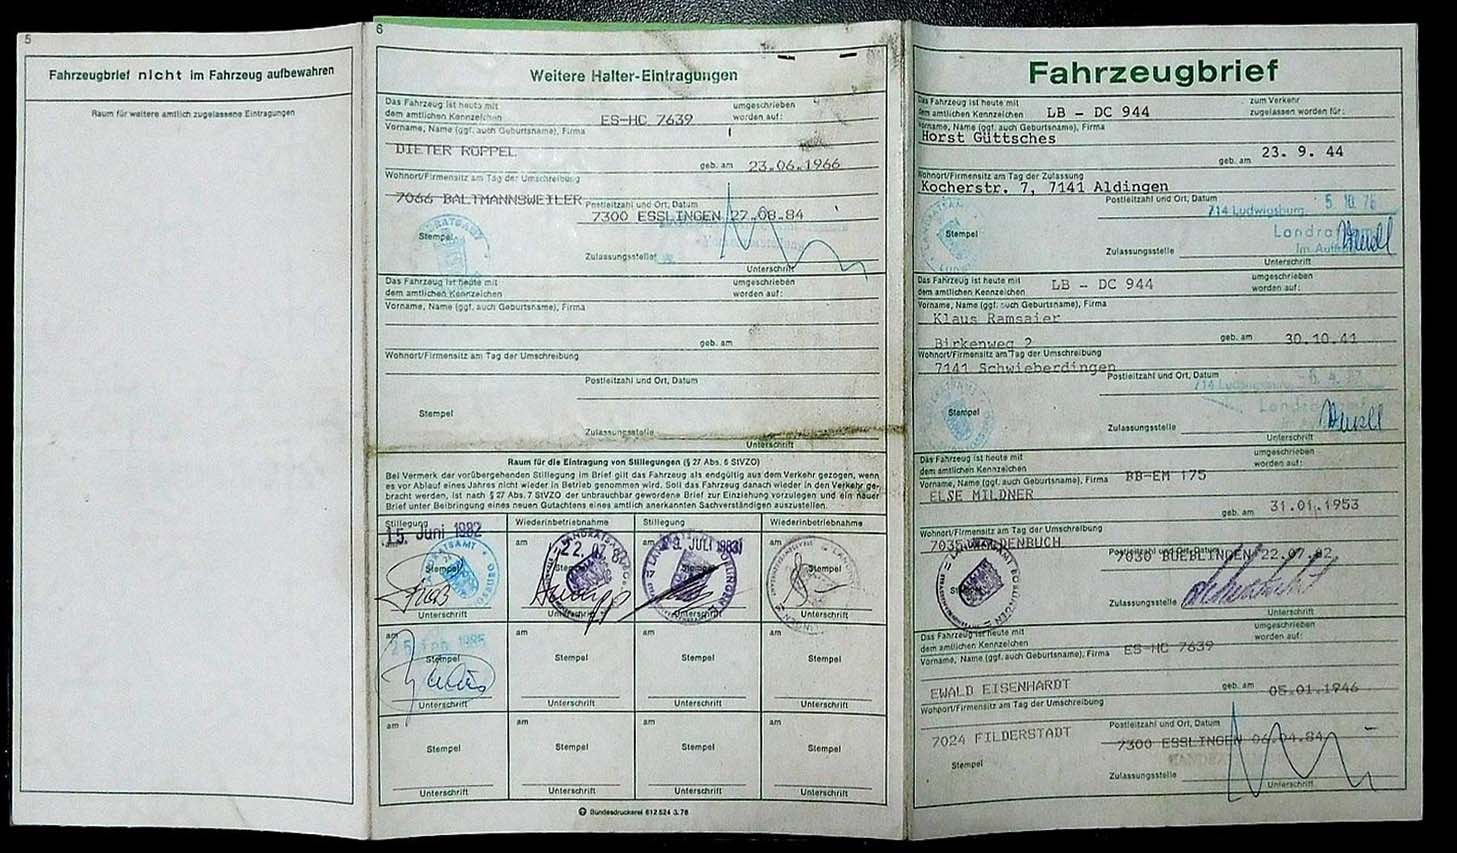 5
Fahrzeugbrief nicht im Fahrzeug aufbewahren
Raum für weitere amtlich zugelassene Eintragungen
6
Weitere Halter-Eintragungen
Das Fahrzeug ist heute mit
dem amtlichen Kennzeichen ES-HC 7639 umgeschrieben worden auf:
Vorname, Name (ggf. auch Geburtsname), Firma
DIETER ROPPEL
geb. am 23.06.1966
Wohnort/Firmensitz am Tag der Umschreibung
7066 BALTMANNSWEILER
Postleitzahl und Ort, Datum
7300 ESSLINGEN 27.08.84
Stempel
Zulassungsstelle
Unterschrift
Das Fahrzeug ist heute mit
dem amtlichen Kennzeichen
umgeschrieben worden auf:
Vorname, Name (ggf. auch Geburtsname), Firma
geb. am
Wohnort/Firmensitz am Tag der Umschreibung
Postleitzahl und Ort, Datum
Stempel
Zulassungsstelle
Unterschrift
Raum für die Eintragung von Stillegungen (§ 27 Abs. 6 StVZO)
Bei Vermerk der vorübergehenden Stillegung im Brief gilt das Fahrzeug als endgültig aus dem Verkehr gezogen, wenn
es vor Ablauf eines Jahres nicht wieder in Betrieb genommen wird. Soll das Fahrzeug danach wieder in den Verkehr ge-
bracht werden, ist nach § 27 Abs. 7 StVZO der unbrauchbar gewordene Brief zur Einziehung vorzulegen und ein neuer
Brief unter Beibringung eines neuen Gutachtens eines amtlich anerkannten Sachverständigen auszustellen.
Stillegung Wiederinbetriebnahme Stillegung Wiederinbetriebnahme
15. Juni 1982
am am am am
22. 07.
JULI 1983
LANDRATSAMT
Stempel Stempel Stempel Stempel
Unterschrift Unterschrift Unterschrift Unterschrift
am am am am
1985
Stempel Stempel Stempel Stempel
Unterschrift Unterschrift Unterschrift Unterschrift
am am am am
Stempel Stempel Stempel Stempel
Unterschrift Unterschrift Unterschrift Unterschrift
Bundesdruckerei 612 524 3.76
Fahrzeugbrief
Das Fahrzeug ist heute mit
dem amtlichen Kennzeichen LB - DC 944 zum Verkehr zugelassen worden für:
Vorname, Name (ggf. auch Geburtsname), Firma
Horst Güttsches
geb. am 23. 9. 44
Wohnort/Firmensitz am Tag der Zulassung
Kocherstr. 7, 7141 Aldingen
Postleitzahl und Ort, Datum
714 Ludwigsburg 5. 10. 76
Stempel
Zulassungsstelle
Unterschrift
Das Fahrzeug ist heute mit
dem amtlichen Kennzeichen LB - DC 944 umgeschrieben worden auf:
Vorname, Name (ggf. auch Geburtsname), Firma
Klaus Ramsaier
Birkenweg 2
geb. am 30.10.41
Wohnort/Firmensitz am Tag der Umschreibung
7141 Schwieberdingen
Postleitzahl und Ort, Datum
714 Ludwigsburg
Stempel
Zulassungsstelle
Unterschrift
Das Fahrzeug ist heute mit
dem amtlichen Kennzeichen BB-EM 175 umgeschrieben worden auf:
Vorname, Name (ggf. auch Geburtsname), Firma
ELSE MILDNER
geb. am 31.01.1953
Wohnort/Firmensitz am Tag der Umschreibung
Postleitzahl und Ort, Datum
7030 BOEBLINGEN 22.07.82
LANDRATSAMT BÖBLINGEN
Zulassungsstelle
Unterschrift
Das Fahrzeug ist heute mit
dem amtlichen Kennzeichen ES-HC 7639 umgeschrieben worden auf:
Vorname, Name (ggf. auch Geburtsname), Firma
EWALD EISENHARDT
geb. am 05.01.1946
Wohnort/Firmensitz am Tag der Umschreibung
7024 FILDERSTADT
Postleitzahl und Ort, Datum
7300 ESSLINGEN 06.04.84
Stempel
Zulassungsstelle
Unterschrift